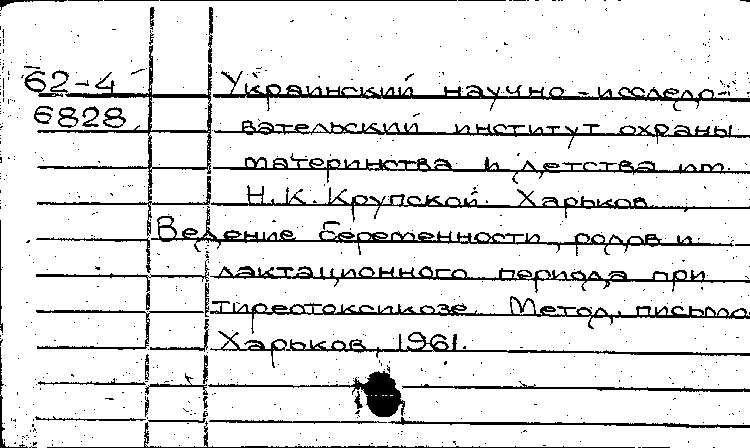 62-4 Украинский научно-исследо-
6828 вательский институт охраны
материнства и детства им.
Н.К. Крупской. Харьков.
Ведение беременности, родов и
лактационного периода при
тиреотоксикозе. Метод. письмо
Харьков, 1961.